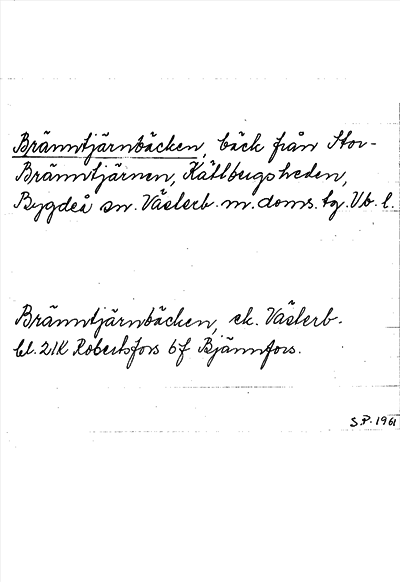 Bränntjärnbäcken, bäck från Stor-
Bränntjärnen, Kätlbugsheden,
Bygdeå sn. Västerb. m. doms. tg. Vb. l.
Bränntjärnbäcken, ek. Västerb.
bl. 21K Robertsfors 6f Bjännfors.
S.P. 1961